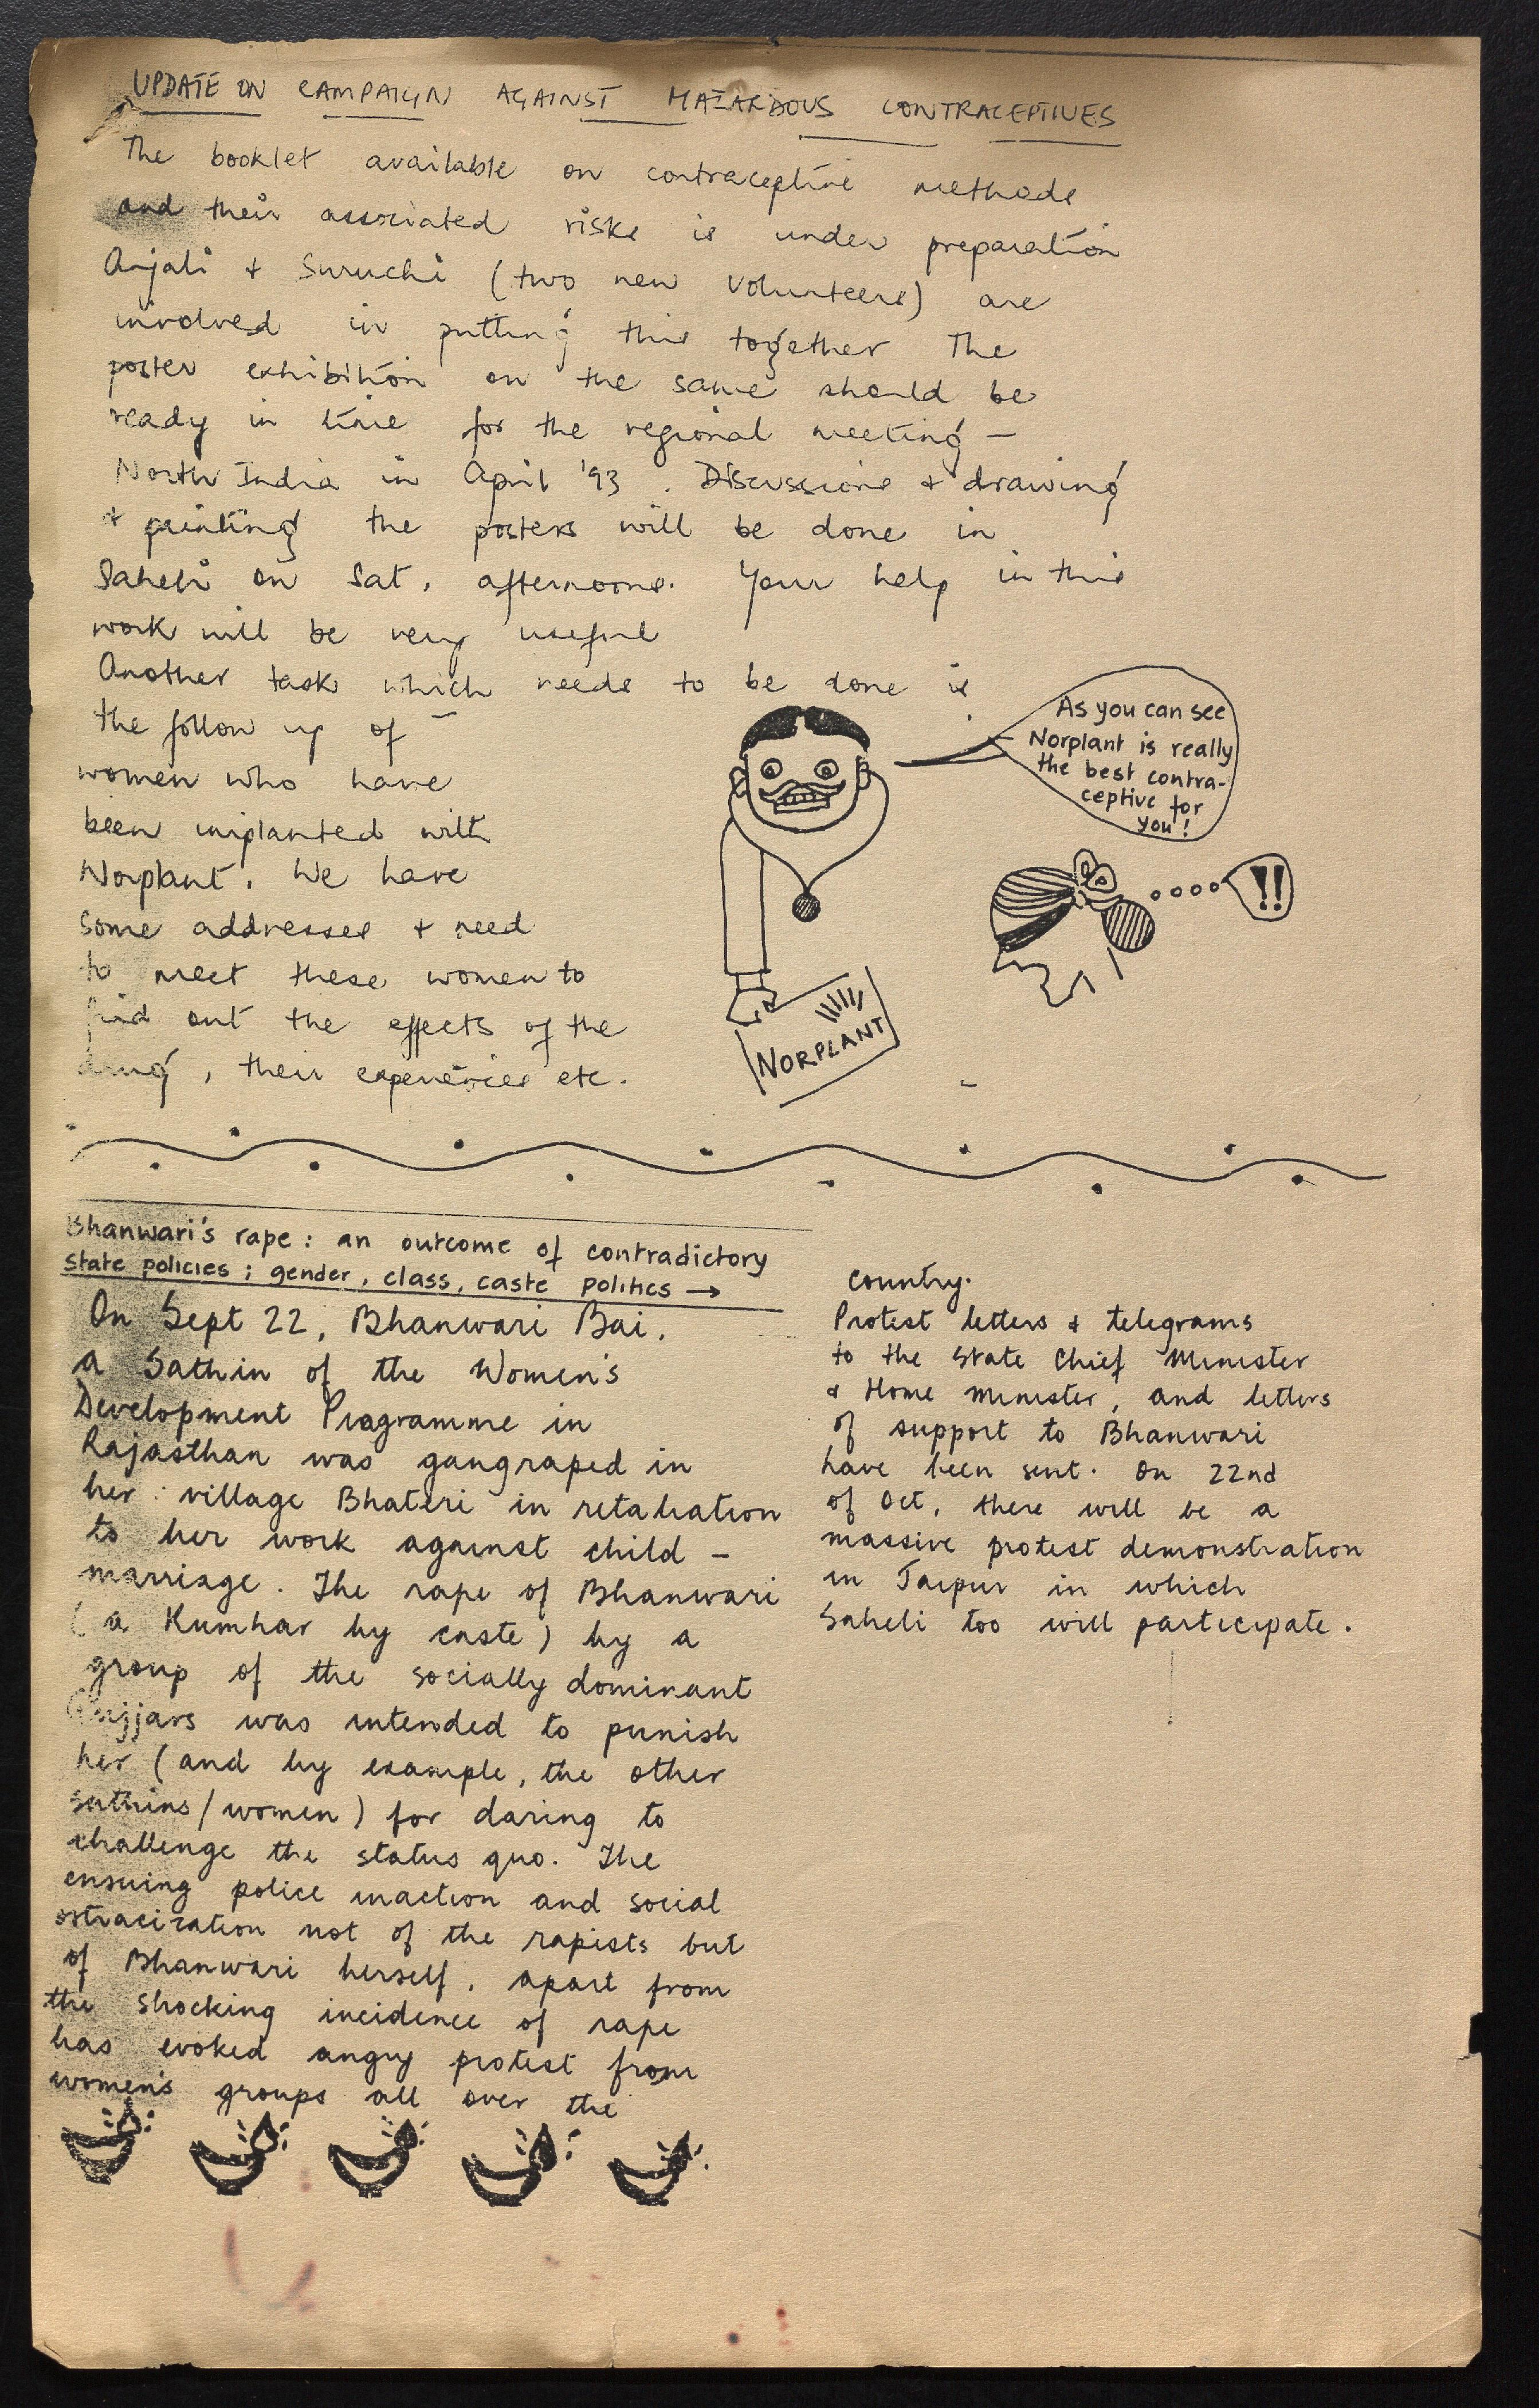 UPDATE ON CAMPAIGN AGAINST HAZARDOUS CONTRACEPTIVES
The booklet available on contraceptive methods
and their associated risks is under preparation
Anjali & Suruchi (two new volunteers) are
involved in putting this together The
poster exhibition on the same should be
ready in time for the regional meeting -
North India in April '93. Discussions & drawing
& printing the posters will be done in
Saheli on Sat. afternoons. Your help in this
work will be very useful
Another task which needs to be done is
the follow up of
women who have
been implanted with
Norplant. We have
some addresses & need
to meet these women to
find out the effects of the
drug, their experiences etc.
As you can see
Norplant is really
the best contra-
ceptive for
you!
!!
NORPLANT
Bhanwari's rape: an outcome of contradictory
state policies; gender, class, caste politics →
On Sept 22, Bhanwari Bai,
a Sathin of the Women's
Development Programme in
Rajasthan was gangraped in
her village Bhateri in retaliation
to her work against child -
marriage. The rape of Bhanwari
(a Kumhar by caste) by a
group of the socially dominant
Gujjars was intended to punish
her (and by example, the other
sathins/women) for daring to
challenge the status quo. The
ensuing police inaction and social
ostracization not of the rapists but
of Bhanwari herself, apart from
the shocking incidence of rape
has evoked angry protest from
women's groups all over the
country.
Protest letters & telegrams
to the State Chief Minister
& Home Minister, and letters
of support to Bhanwari
have been sent. On 22nd
of Oct, there will be a
massive protest demonstration
in Jaipur in which
Saheli too will participate.